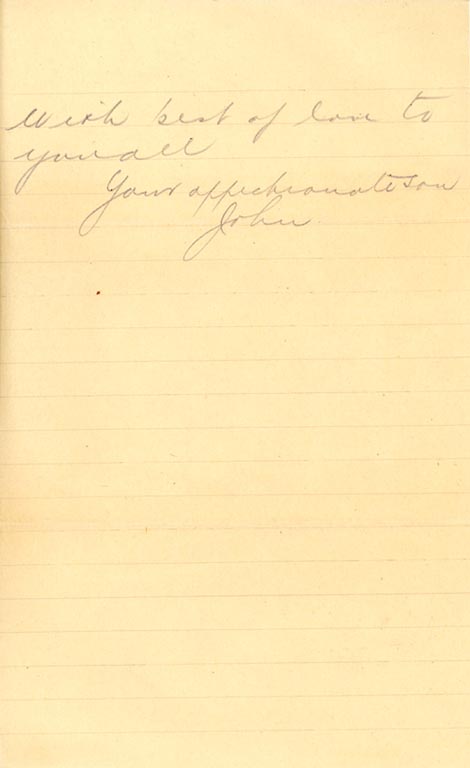 With best of love to
you all
Your affectionate son
John